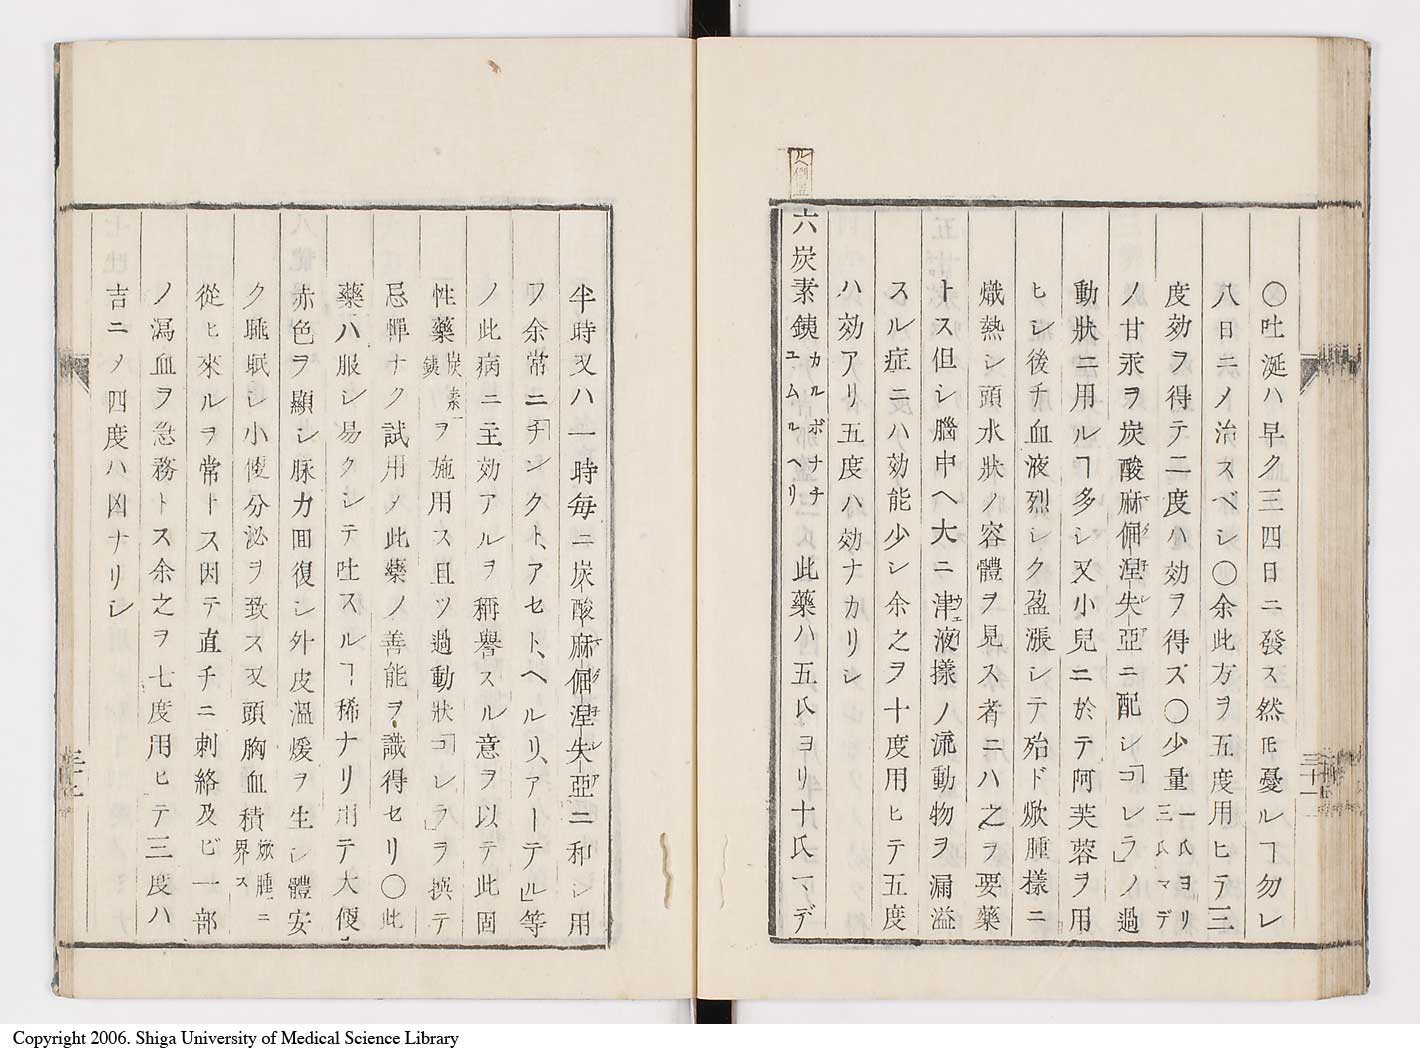 〇吐涎ハ早ク三四日ニ發ス然𪜈憂ルヿ勿レ
八日ニメ治スベシ〇余此方ヲ五度用ヒテ三
度効ヲ得テ二度ハ効ヲ得ズ〇少量一氏ヨリ三氏マデ
ノ甘汞ヲ炭酸麻倔涅失亞ニ配シ「コレラ」ノ過
動狀ニ用ルヿ多シ又小兒ニ於テ阿芙蓉ヲ用
ヒシ後チ血液烈シク盈漲シテ殆ド焮腫樣ニ
熾熱シ頭水狀ノ容體ヲ見ス者ニハ之ヲ要藥
トス但シ腦中ヘ大ニ津液樣ノ流動物ヲ漏溢
スル症ニハ効能少シ余之ヲ十度用ヒテ五度
ハ効アリ五度ハ効ナカリシ
六炭素銕カルボナチユムルヘリ 此藥ハ五氏ヨリ十氏マデ
三十一
半時又ハ一時每ニ炭酸麻倔涅失亞ニ和シ用
フ余常ニ「チンクト、アセト、ヘルリ、アーテル」等
ノ此病ニ主効アルヲ稱譽スル意ヲ以テ此固
性藥炭素銕ヲ施用ス且ツ過動狀「コレラ」ヲ撰テ
忌憚ナク試用メ此藥ノ善能ヲ識得セリ〇此
藥ハ服シ易クシテ吐スルヿ稀ナリ用テ大便
赤色ヲ顯シ脉力囬復シ外皮溫煖ヲ生シ體安
ク睡眠シ小便分泌ヲ致ス又頭胸血積焮腫ニ界ス
從ヒ來ルヲ常トス因テ直チニ刺絡及ビ一部
ノ瀉血ヲ急務トス余之ヲ七度用ヒテ三度ハ
吉ニメ四度ハ凶ナリシ
Copyright 2006. Shiga University of Medical Science Library